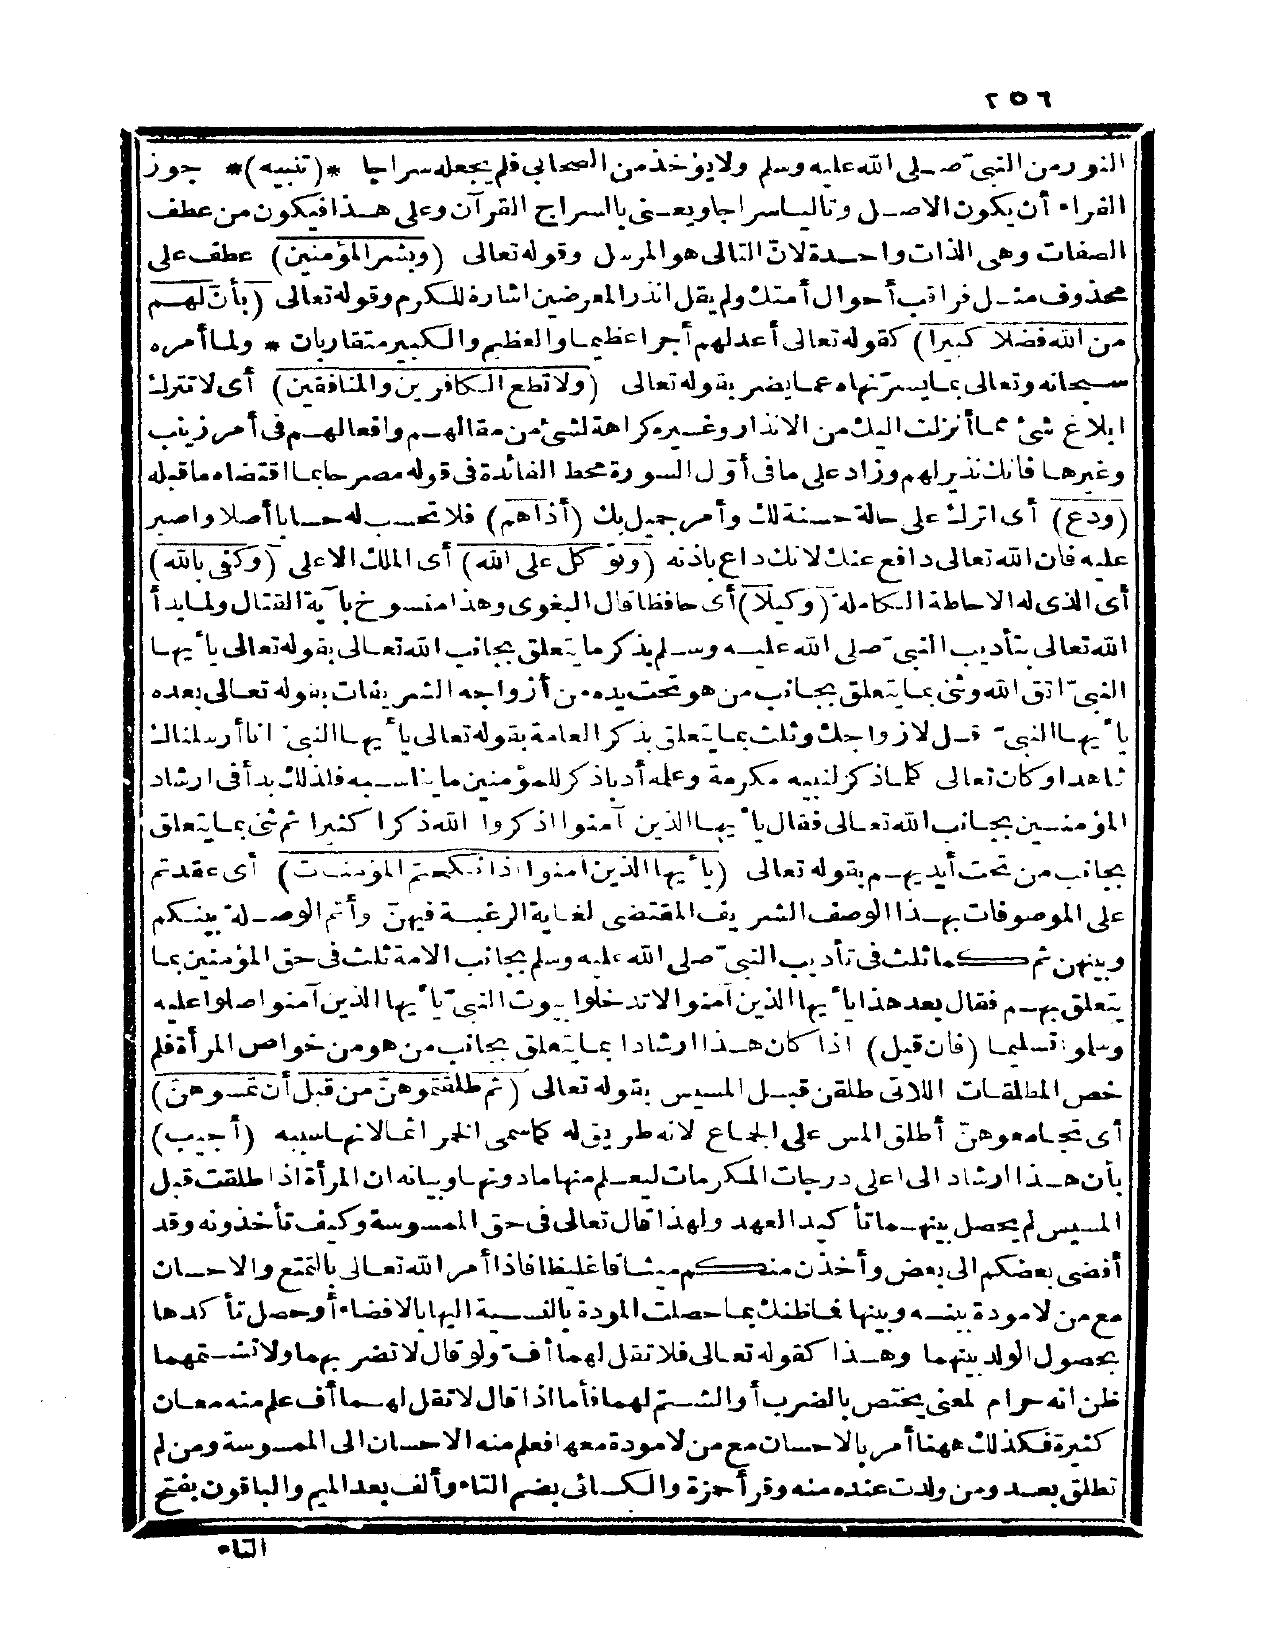 ٢٥٦
النور من النبيّ صلى الله عليه وسلم ولا يؤخذ من الصحابي فلم يجعله سراجا *(تنبيه)* جوز
الفراء أن يكون الاصل وتاليا سراجا ويعنى بالسراج القرآن وعلى هذا فيكون من عطف
الصفات وهى الذات واحدة لانّ التالى هو المرسل وقوله تعالى (وبشر المؤمنين) عطف على
محذوف مثل فراقب أحوال أمتك ولم يقل انذر المعرضين اشارة للكرم وقوله تعالى (بأنّ لهم
من الله فضلا كبيرا) كقوله تعالى أعد لهم أجرا عظيما والعظيم والكبير متقاربان * ولما أمره
سبحانه وتعالى بما يسرّ نهاه عما يضر بقوله تعالى (ولا تطع الكافرين والمنافقين) أى لا تترك
ابلاغ شئ مما أنزلت اليك من الانذار وغيره كراهة لشئ من مقالهم وافعالهم فى أمر زينب
وغيرها فانك نذير لهم وزاد على ما فى أوّل السورة محط الفائدة فى قوله مصرحا بما اقتضاه ما قبله
(ودع) أى اترك على حالة حسنة لك وأمر جميل بك (أذاهم) فلا تحسب له حسابا أصلا واصبر
عليه فان الله تعالى دافع عنك لانك داع باذنه (وتوكل على الله) أى الملك الاعلى (وكفى بالله)
أى الذى له الاحاطة الكاملة (وكيلا) أى حافظا قال البغوى وهذا منسوخ بآية القتال ولما بدأ
الله تعالى بتأديب النبيّ صلى الله عليه وسلم بذكر ما يتعلق بجانب الله تعالى بقوله تعالى يا أيها
النبيّ اتق الله وثنى بما يتعلق بجانب من هو تحت يده من أزواجه الشريفات بقوله تعالى بعده
يا أيها النبيّ قل لازواجك وثلث بما يتعلق بذكر العامة بقوله تعالى يا أيها النبيّ انا أرسلناك
شاهدا وكان تعالى كلما ذكر لنبيه مكرمة وعلمه أدبا ذكر للمؤمنين ما يناسبه فلذلك بدأ فى ارشاد
المؤمنين بجانب الله تعالى فقال يا أيها الذين آمنوا اذكروا الله ذكرا كثيرا ثم ثنى بما يتعلق
بجانب من تحت أيديهم بقوله تعالى (يا أيها الذين آمنوا اذا نكحتم المؤمنات) أى عقدتم
على الموصوفات بهذا الوصف الشريف المقتضى لغاية الرغبة فيهنّ وأتم الوصلة بينكم
وبينهن ثم كما ثلث فى تأديب النبيّ صلى الله عليه وسلم بجانب الامة ثلث فى حق المؤمنين بما
يتعلق بهم فقال بعد هذا يا أيها الذين آمنوا لا تدخلوا بيوت النبيّ يا أيها الذين آمنوا صلوا عليه
وسلموا تسليما (فان قيل) اذا كان هذا ارشادا بما يتعلق بجانب من هو من خواص المرأة فلم
خص المطلقات اللاتى طلقن قبل المسيس بقوله تعالى (ثم طلقتموهنّ من قبل أن تمسوهنّ)
أى تجامعوهنّ أطلق المس على الجماع لانه طريق له كما سمى الخمر اثما لانها سببه (أجيب)
بأن هذا ارشاد الى اعلى درجات المكرمات ليعلم منها ما دونها وبيانه ان المرأة اذا طلقت قبل
المسيس لم يحصل بينهما تأكيد العهد ولهذا قال تعالى فى حق الممسوسة وكيف تأخذونه وقد
أفضى بعضكم الى بعض وأخذن منكم ميثاقا غليظا فاذا أمر الله تعالى بالتمتع والاحسان
مع من لا مودة بينه وبينها فما ظنك بما حصلت المودة بالنسبة اليها بالافضاء أو حصل تأكدها
بحصول الولد بينهما وهذا كقوله تعالى فلا تقل لهما أف ولو قال لا تضربهما ولا تشتمهما
ظن انه حرام لمعنى يختص بالضرب أو الشتم لهما فأما اذا قال لا تقل لهما أف علم منه معان
كثيرة فكذلك ههنا أمر بالاحسان مع من لا مودة معها فعلم منه الاحسان الى الممسوسة ومن لم
تطلق بعد ومن ولدت عنده منه وقرأ حمزة والكسائى بضم التاء وألف بعد الميم والباقون بفتح
التاء